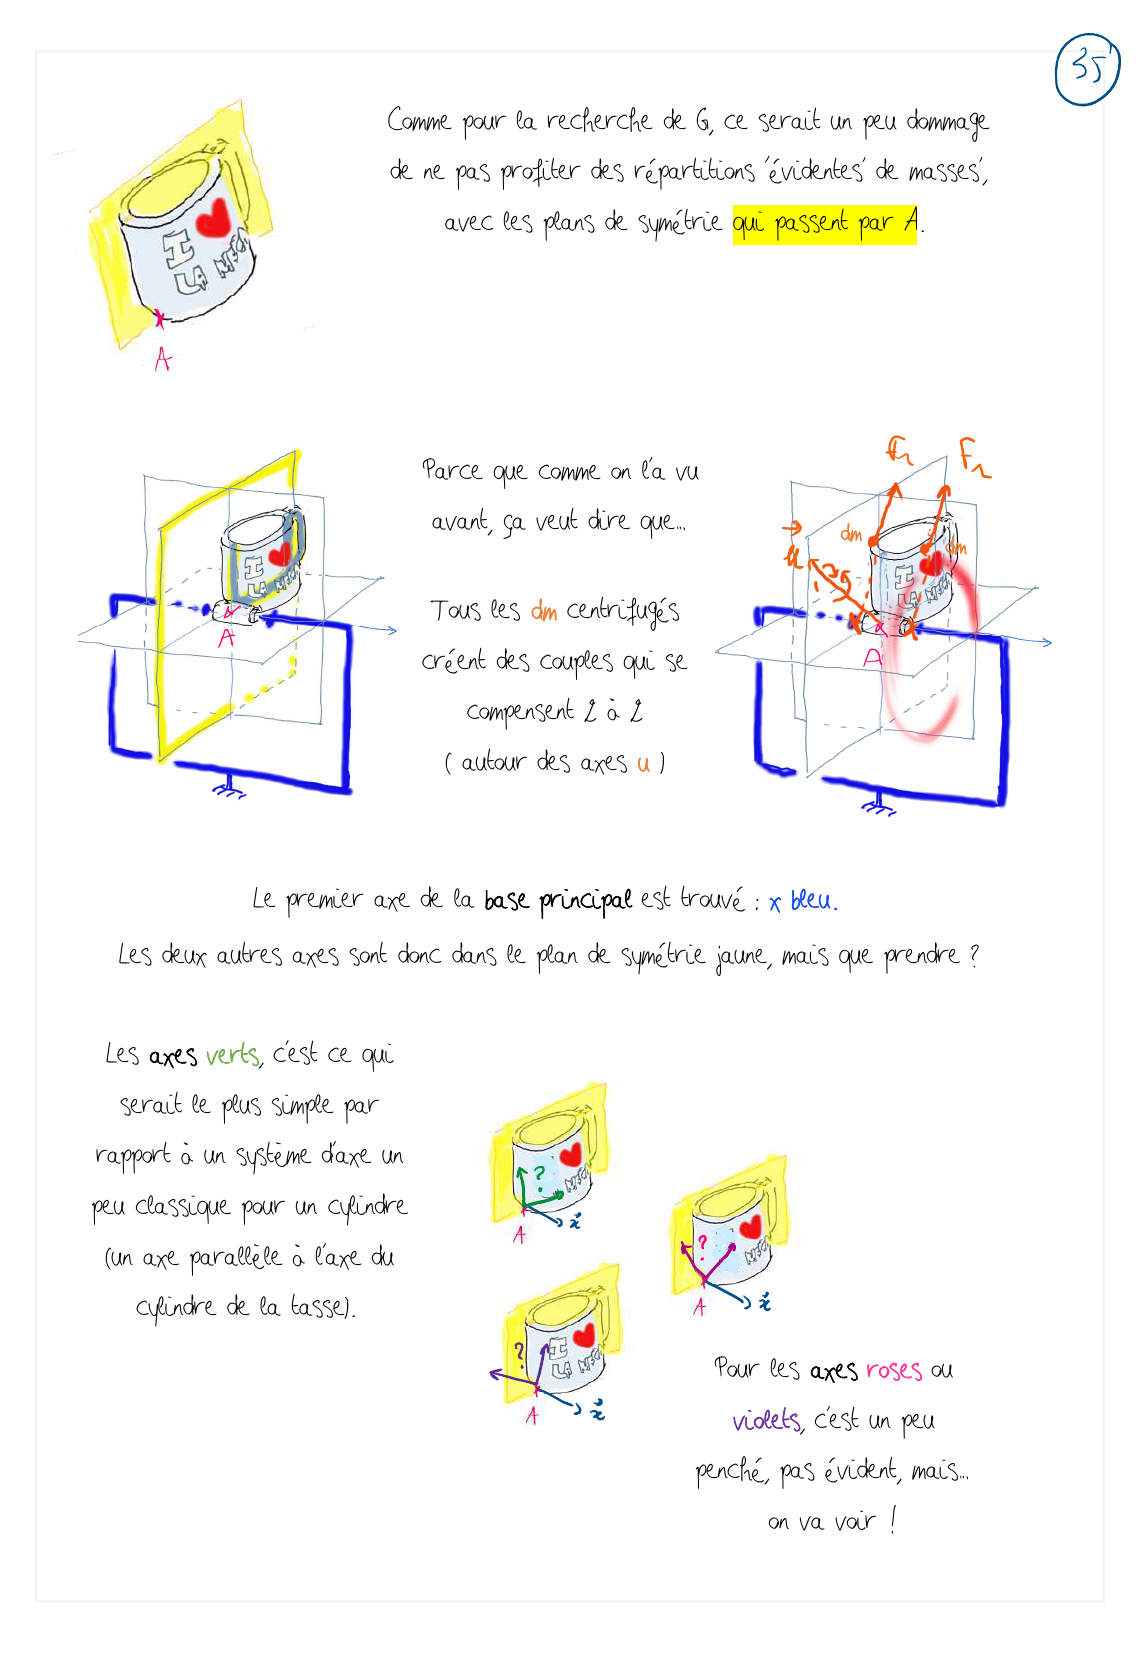 35
Comme pour la recherche de G, ce serait un peu dommage
de ne pas profiter des répartitions 'évidentes' de masses',
avec les plans de symétrie qui passent par A.
I ❤
LA MECA
A
Parce que comme on l'a vu
avant, ça veut dire que...
Tous les dm centrifugés
créent des couples qui se
compensent 2 à 2
( autour des axes u )
I ❤
LA MECA
A
F₂
dm
dm
u
I ❤
LA MECA
A
Le premier axe de la base principal est trouvé : x bleu.
Les deux autres axes sont donc dans le plan de symétrie jaune, mais que prendre ?
Les axes verts, c'est ce qui
serait le plus simple par
rapport à un système d'axe un
peu classique pour un cylindre
(un axe parallèle à l'axe du
cylindre de la tasse).
?
❤
MECA
A
x
?
❤
MECA
A
x
?
I ❤
LA MECA
A
x
Pour les axes roses ou
violets, c'est un peu
penché, pas évident, mais...
on va voir !